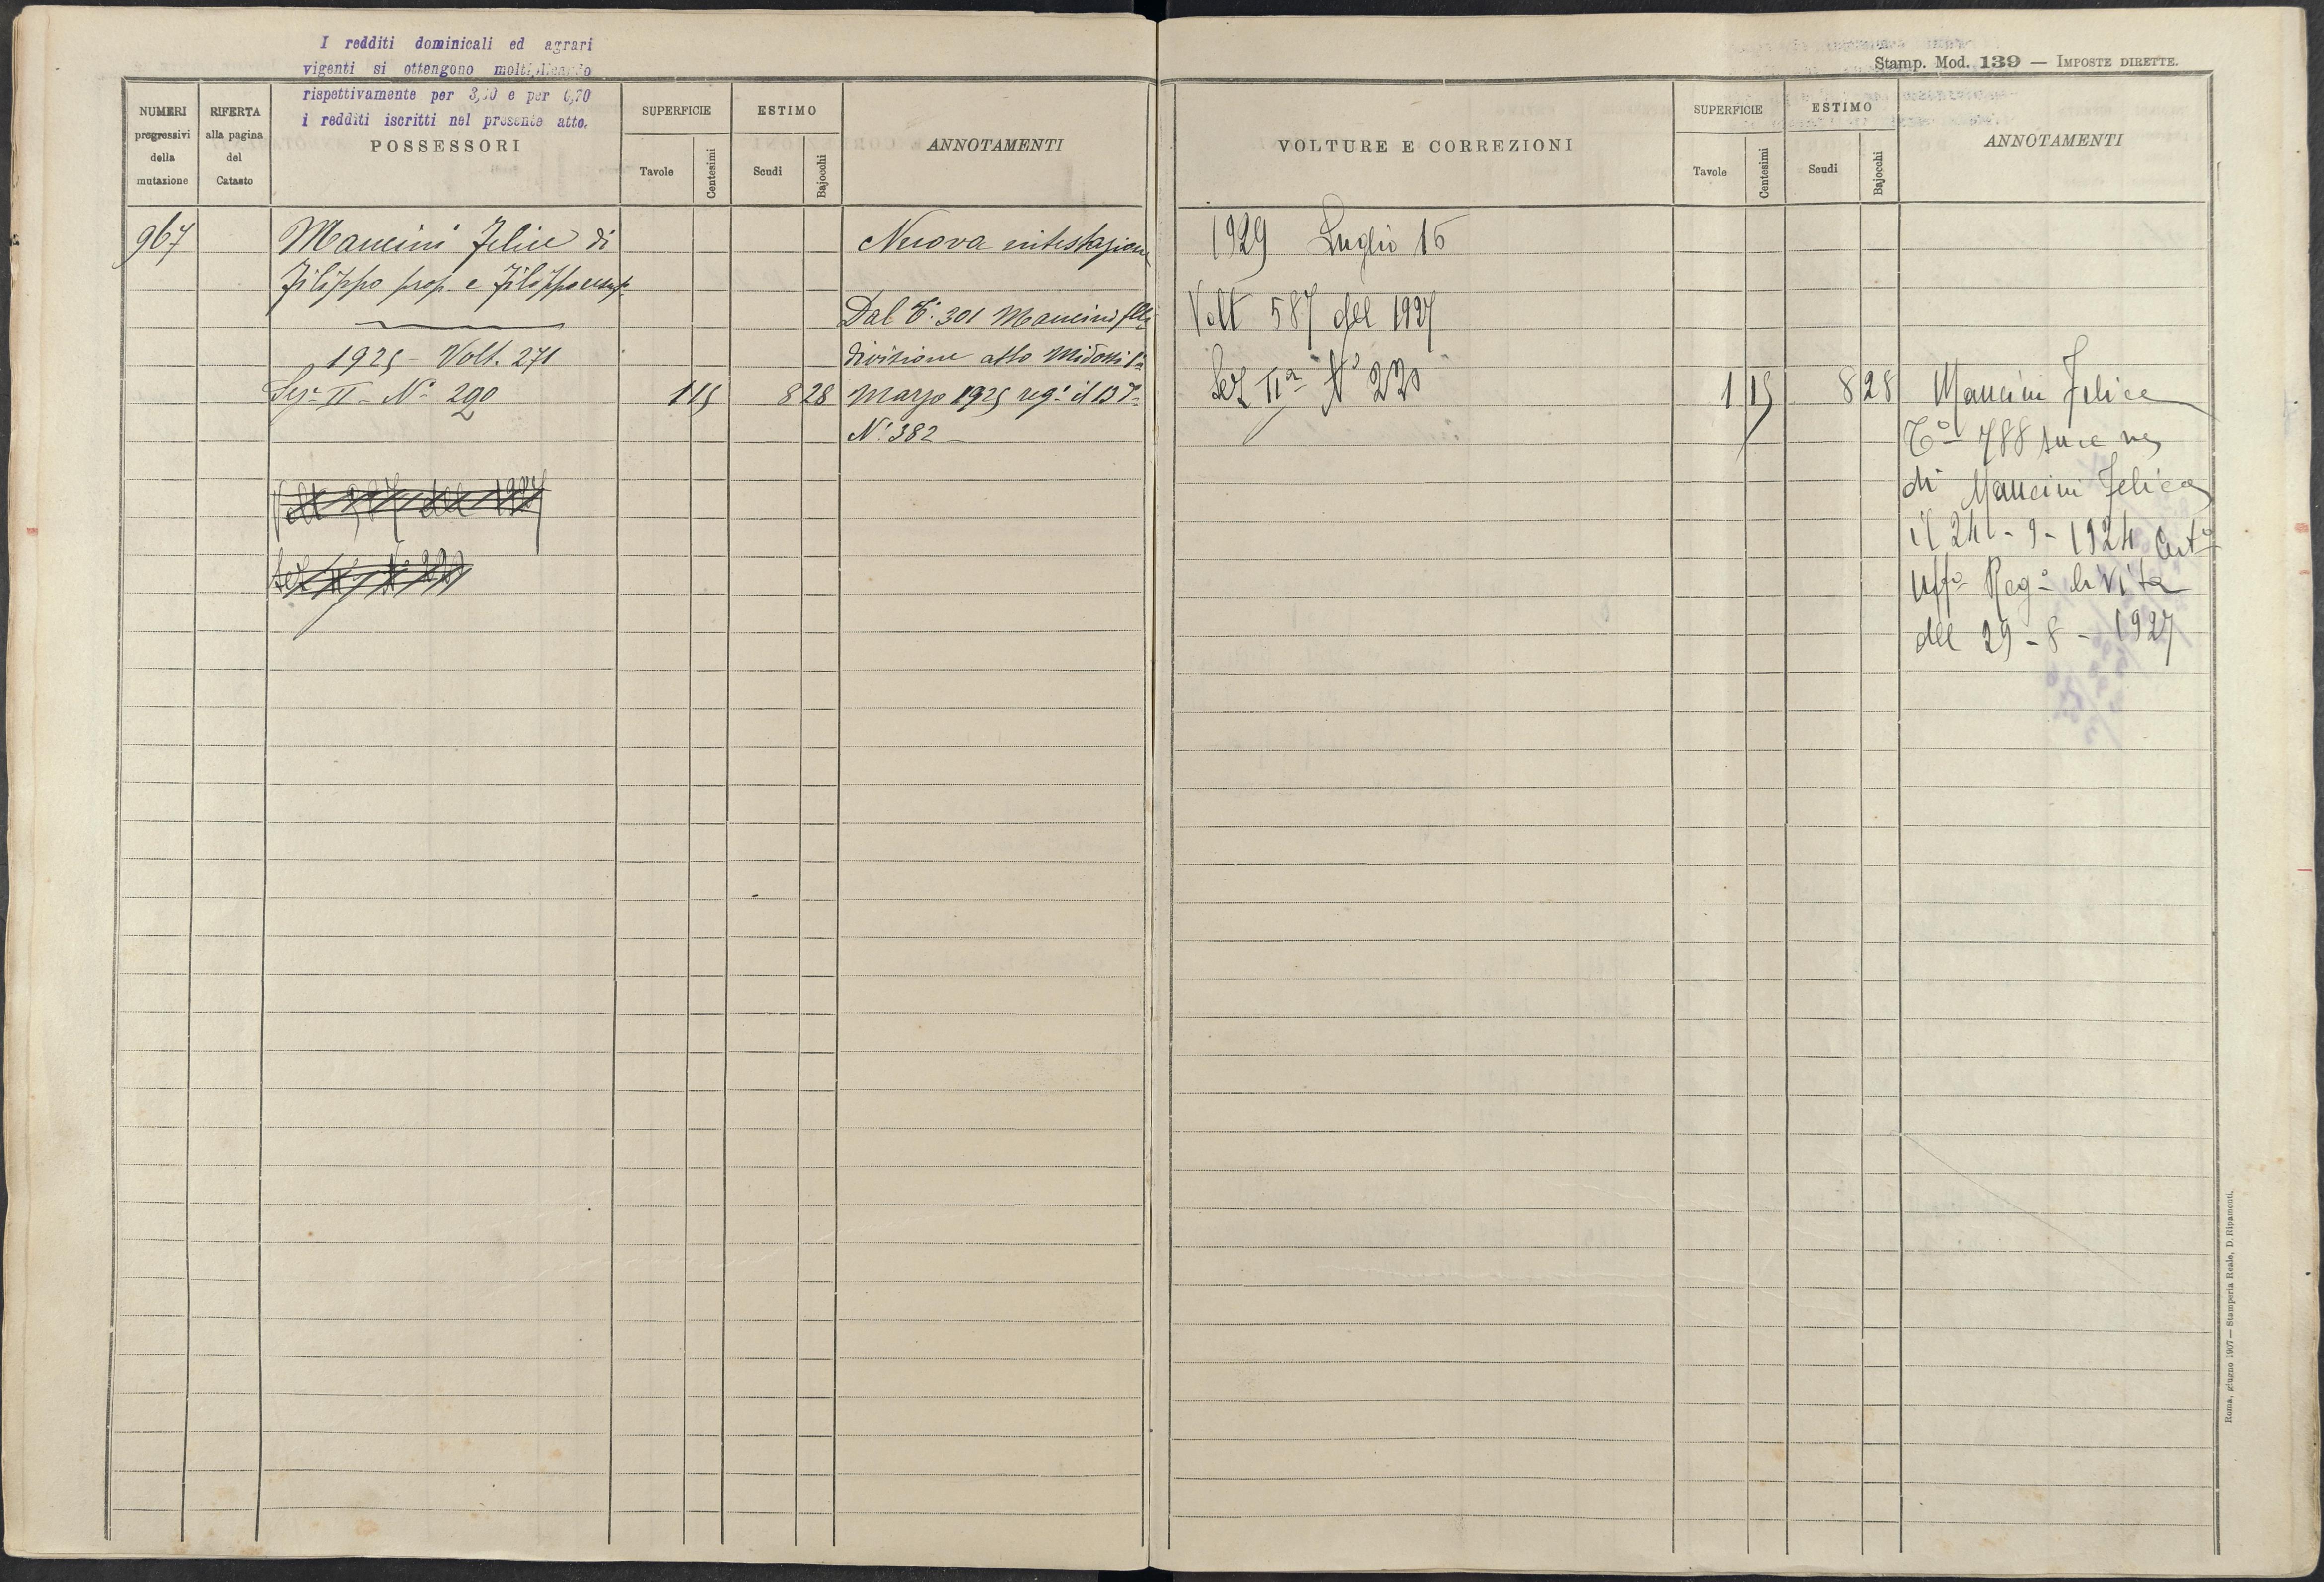 I redditi dominicali ed agrari
vigenti si ottengono moltiplicando
rispettivamente per 3, e per
i redditi iscritti nel presente atto.
NUMERI
progressivi
della
mutazione
RIFERTA
alla pagina
del
Catasto
POSSESSORI
SUPERFICIE
Tavole
Centesimi
ESTIMO
Scudi
Bajocchi
ANNOTAMENTI
967
Mancini Felice di
Filippo prop. e Filippo usuf.
1925 - Volt. 271
Sez. II - N. 290
1 15 8 28
Nuova intestazione
Dal T. 301 Mancini flli
divisione atto Midossi
Marzo 1925 reg. il 13
N. 382
Volt 587 del 1927
Sez II N
Stamp. Mod. 139 — IMPOSTE DIRETTE.
VOLTURE E CORREZIONI
SUPERFICIE
Tavole
Centesimi
ESTIMO
Scudi
Bajocchi
ANNOTAMENTI
1929 Luglio 15
Volt 587 del 1927
Sez IIa N°
1 15 8 28
Mancini Felice
T° 788 succ ne
di Mancini Felice
il 24 - 9 - 1924 Cert°
Uff° Reg° di Vita
del 29 - 8 - 1927
Roma, giugno 1907 — Stamperia Reale, D. Ripamonti.